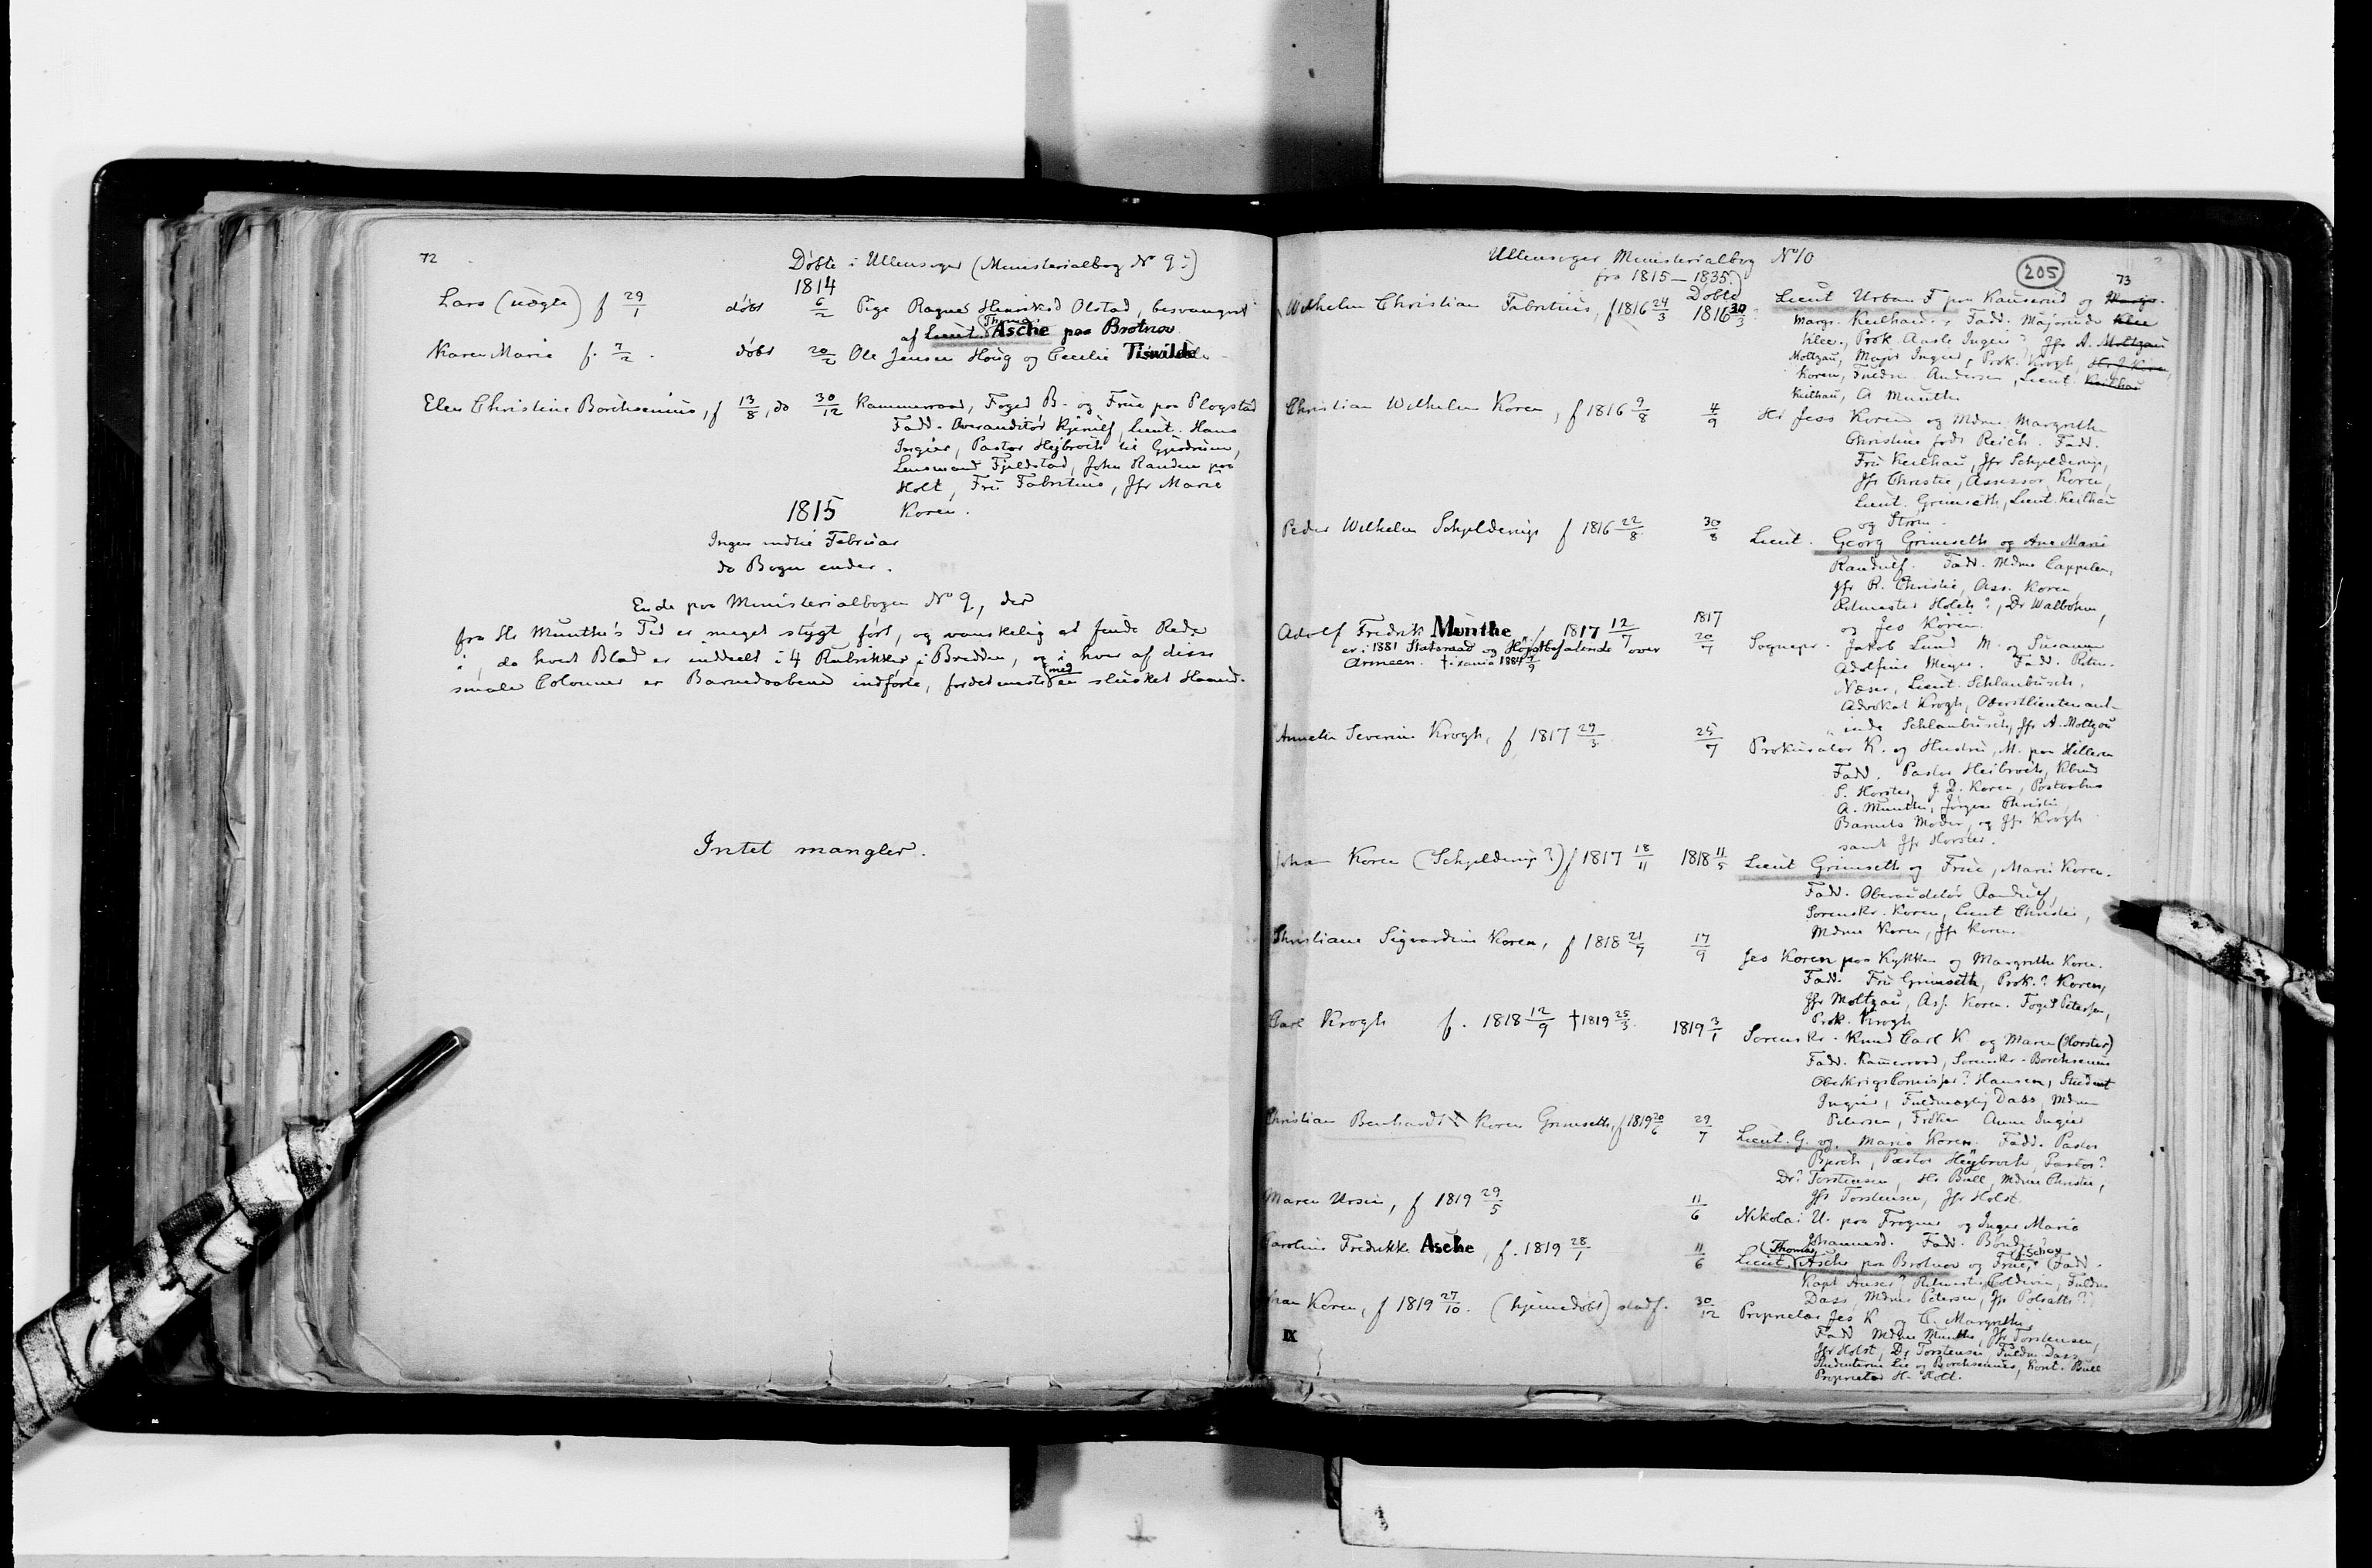 72
Døbte i Ullensager (Ministerialbog No 9.)
1814
Lars (uægte) f 29/1 døbt 6/2 Pige Ragne Henriksd Olstad, besvangret
af Lieut. (Thomas) Asche paa Brotnov
Karen Marie f. 7/2 . døbt 20/2 Ole Jensen Houg og Cecilie Tisvilde
Elen Christine Borchsenius, f 13/8, do 30/12 Kammerraad, Foged B. og Frue paa Plogstad
Fadd. Overauditør Kjerulf, Lieut. Hans
Ingier, Pastor Hejbroch til Gjerdrum,
Lensmand Fjeldstad, John Randen paa
Holt, Fru Fabritius, Jfr Marie
Koren.
1815
Ingen indtil Februar
da Bogen ender.
Ende paa Ministerialbogen No 9, der
fra Hr Munthe's Tid er meget stygt ført, og vanskelig at finde Rede
i, da hvert Blad er inddeelt i 4 Rubrikker i Bredden, og i hver af disse
smale Colonner er Barnedaabene indførte, fordetmeste (med) en slusket Haand.
Intet mangler.
Ullensager Ministerialbog No 10
fra 1815—1835.)
205
73
Døbte
Wilhelm Christian Fabritius, f 1816 24/3 1816 30/3 Lieut Urban F paa Kauserud og
Margr. Keilhau, Fadd. Majorinde
Klee, Prok. Ingier, Jfr A. Moltzau
Moltzau, Major Ingier, Prok. Krogh,
Koren, Fuldm. Andersen, Lieut. Keilhau
Keilhau, A Munthe
Christian Wilhelm Koren, f 1816 9/8 4/9 Hr Jess Koren og Mdme Margrethe
Christine født Reich. Fadd.
Fru Keilhau, Jfr Schjelderup,
Jfr Christie, Assessor Koren,
Lieut. Grimseth, Lieut. Keilhau
og Strøm.
Peder Wilhelm Schjelderup f 1816 22/8 30/8 Lieut. Georg Grimseth og Ane Marie
Randulf. Fadd. Mdme Cappelen,
Jfr R. Christie, Ass. Koren,
Ritmester Holck?, Dr Walbohm,
og Jes Koren.
Adolf Fredrik Munthe, f 1817 12/7 1817 20/7 Sognepr. Jakob Lund M. og Susanne
er i 1881 Statsraad og Højstbefalende over
Armeen. † i xania 1884
Adolfine Meyer. Fadd. Ritm.
Næser, Lieut. Schlanbusch,
Advokat Krogh, Oberstlieutenant-
inde Schlanbusch, Jfr A. Moltzau
Annette Severine Krogh, f 1817 29/3 25/7 Prokurator K. og Hustru, M. paa Hilleren
Fadd. Pastor Heibroch,
S. Horster, J. D. Koren,
A. Munthe, Jørgen Christie,
Barnets Moder, og Jfr Krogh
samt Jfr Horster.
Johan Koren (Schjelderup?) f 1817 18/11 1818 11/5 Lieut Grimseth og Frue, Marie Koren.
Fadd. Oberauditør Randulf,
Sorenskr. Koren, Lieut Christie,
Mdme Koren, Jfr Koren.
Christiane Sigvardine Koren, f 1818 21/7 17/9 Jes Koren paa Kykken og Margrethe Koren.
Fadd. Fru Grimseth, Prok.? Koren,
Jfr Moltzau, Ass. Koren. Foged Petersen,
Prok. Krogh
Carl Krogh f. 1818 12/9 † 1819 25/3. 1819 3/1 Sorenskr. Knud Carl K og Maren (Horster)
Fadd. Kammerraad, Sorenskr. Borchsenius
OberkrigsComissær? Hansen, Student
Ingier, Fuldmægtig Dass, Mdme
Petersen, Frøken Anne Ingier
Christian Benhardt Koren Grimseth, f 1819 20/6 29/7 Lieut. G. og Marie Koren. Fadd. Pastor
Bjerch, Pastor Hejbroch, Pastor?
Dr? Torstensen, Hr Bull, Mdme Christie,
Jfr Torstensen, Jfr Holst.
Maren Ursin, f 1819 29/5 11/6 Nikolai U. paa Frogner og Inger Maria
Johannesd. Fadd. Bønder
Caroline Fredrikke Asche, f. 1819 28/1 11/6 Lieut. (Thomas) Asche paa Brotnov og Frue, Fadd.
Kapt Ritmester Coldevin, Fuldm.
Dass, Mdme Petersen, Jfr
Johan Koren, f 1819 27/10. (hjemmedøbt) stadf. 30/12 Proprietær Jes K og C. Margrethe
Fadd Mdme Munthe, Jfr Torstensen,
Jfr Holst, Dr Torstensen Fuldm Dass
Studenterne Lie og Borchsenius, Kont. Bull
Proprietær H. Holt.
IX